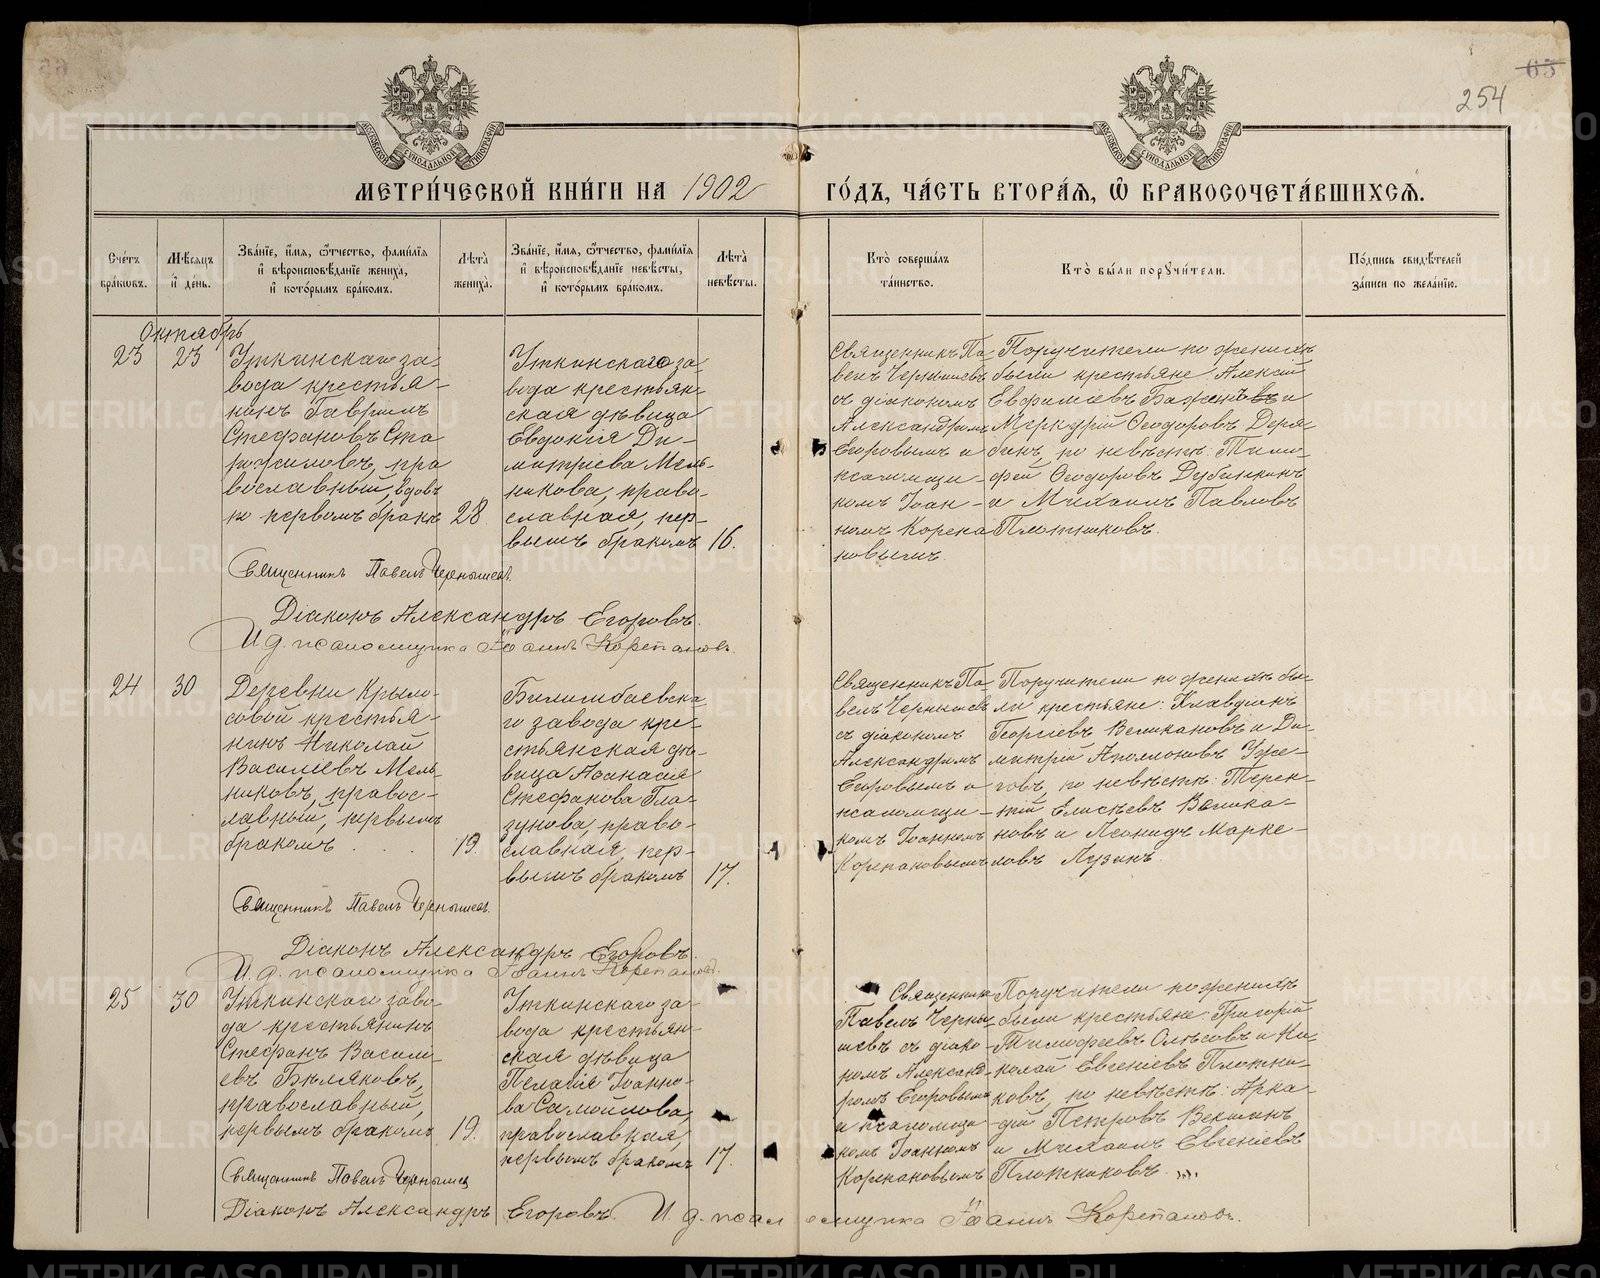 65
254
МЕТРИ́ЧЕСКОЙ КНИ́ГИ НА 1902
ГО́ДЪ, ЧА́СТЬ ВТОРА́Я, Ѿ БРАКОСОЧЕТА́ВШИХСЯ.
Сче́тъ бра́кωвъ.
Мѣ́сяцъ и҆ де́нь.
Зва́нїе, и҆́мя, ѻ҆́тчество, фами́лїя
и҆ вѣроисповѣ́данїе жениха̀,
и҆ кото́рымъ бра́комъ.
Лѣ́та жениха̀.
Зва́нїе, и҆́мя, ѻ҆́тчество, фами́лїя
и҆ вѣроисповѣ́данїе невѣ́сты,
и҆ кото́рымъ бра́комъ.
Лѣ́та невѣ́сты.
Кто̀ соверша́лъ та́инство.
Кто̀ бы́ли порꙋчи́тели.
По́дпись свидѣ́телей
за́писи по жела́нїю.
Октябрь
23 23
Уткинскаго за-
вода крестья-
нинъ Гавриилъ
Стефановъ Ста
рожиловъ, пра
вославный, вдовъ
по первомъ бракѣ 28
Уткинскаго за-
вода крестьян-
ская дѣвица
Евдокія Ди-
митріева Мель-
никова, право-
славная, пер-
вымъ бракомъ 16.
Священникъ Па-
велъ Чернышевъ
съ діакономъ
Александромъ
Егоровымъ и
псаломщи-
комъ Іоан-
номъ Корепа
новымъ.
Поручители по женихѣ
были крестьяне: Алексій
Евфимовъ и
Меркурій Ѳеодоровъ Деря-
бинъ, по невѣстѣ: Тимо-
фей Ѳеодоровъ Дубинкинъ
и Михаилъ Павловъ
Плотниковъ.
Священникъ Павелъ Чернышевъ.
Діаконъ Александръ Егоровъ.
И. д. псаломщика Іоаннъ Корепановъ.
24 30
Деревни Крыло-
совой крестья-
нинъ Николай
Василіевъ Мель-
никовъ, правос-
лавный, первымъ
бракомъ . . . 19.
Билимбаевска-
го завода кре-
стьянская дѣ-
вица Аѳанасія
Стефанова Гла-
зунова, право-
славная, пер-
вымъ бракомъ 17.
Священникъ Па-
велъ Чернышевъ
съ діакономъ
Александромъ
Егоровымъ и
псаломщи-
комъ Іоанномъ
Корепановымъ
Поручители по женихѣ бы-
ли крестьяне: Клавдіанъ
Георгіевъ Великановъ и Ди-
митрій Аполлоновъ
по невѣстѣ: Терен-
тій Елисѣевъ Велика-
новъ и Леонидъ Марке-
ловъ Лузинъ.
Священникъ Павелъ Чернышевъ.
Діаконъ Александръ Егоровъ.
И. д. псаломщика Іоаннъ Корепановъ.
25 30
Уткинскаго заво-
да крестьянинъ
Стефанъ Васили-
евъ Бѣляковъ,
православный,
первымъ бракомъ 19.
Уткинскаго за-
вода крестьян-
ская дѣвица
Пелагія Іоанно-
ва Самойлова,
православная,
первымъ бракомъ 17.
Священникъ
Павелъ Черны-
шевъ съ діако-
номъ Александ-
ромъ Егоровымъ
и псаломщи-
комъ Іоанномъ
Корепановымъ
Поручители по женихѣ
были крестьяне: Григорій
Тимофеевъ и Ни-
колай Евгеніевъ Плотни-
ковъ, по невѣстѣ: Арка-
дій Петровъ Векшинъ
и Михаилъ Евгеніевъ
Плотниковъ.
Священникъ Павелъ Чернышев
Діаконъ Александръ Егоровъ. И. д. псаломщика Іоаннъ Корепановъ.
METRIKI.GASO-URAL.RU